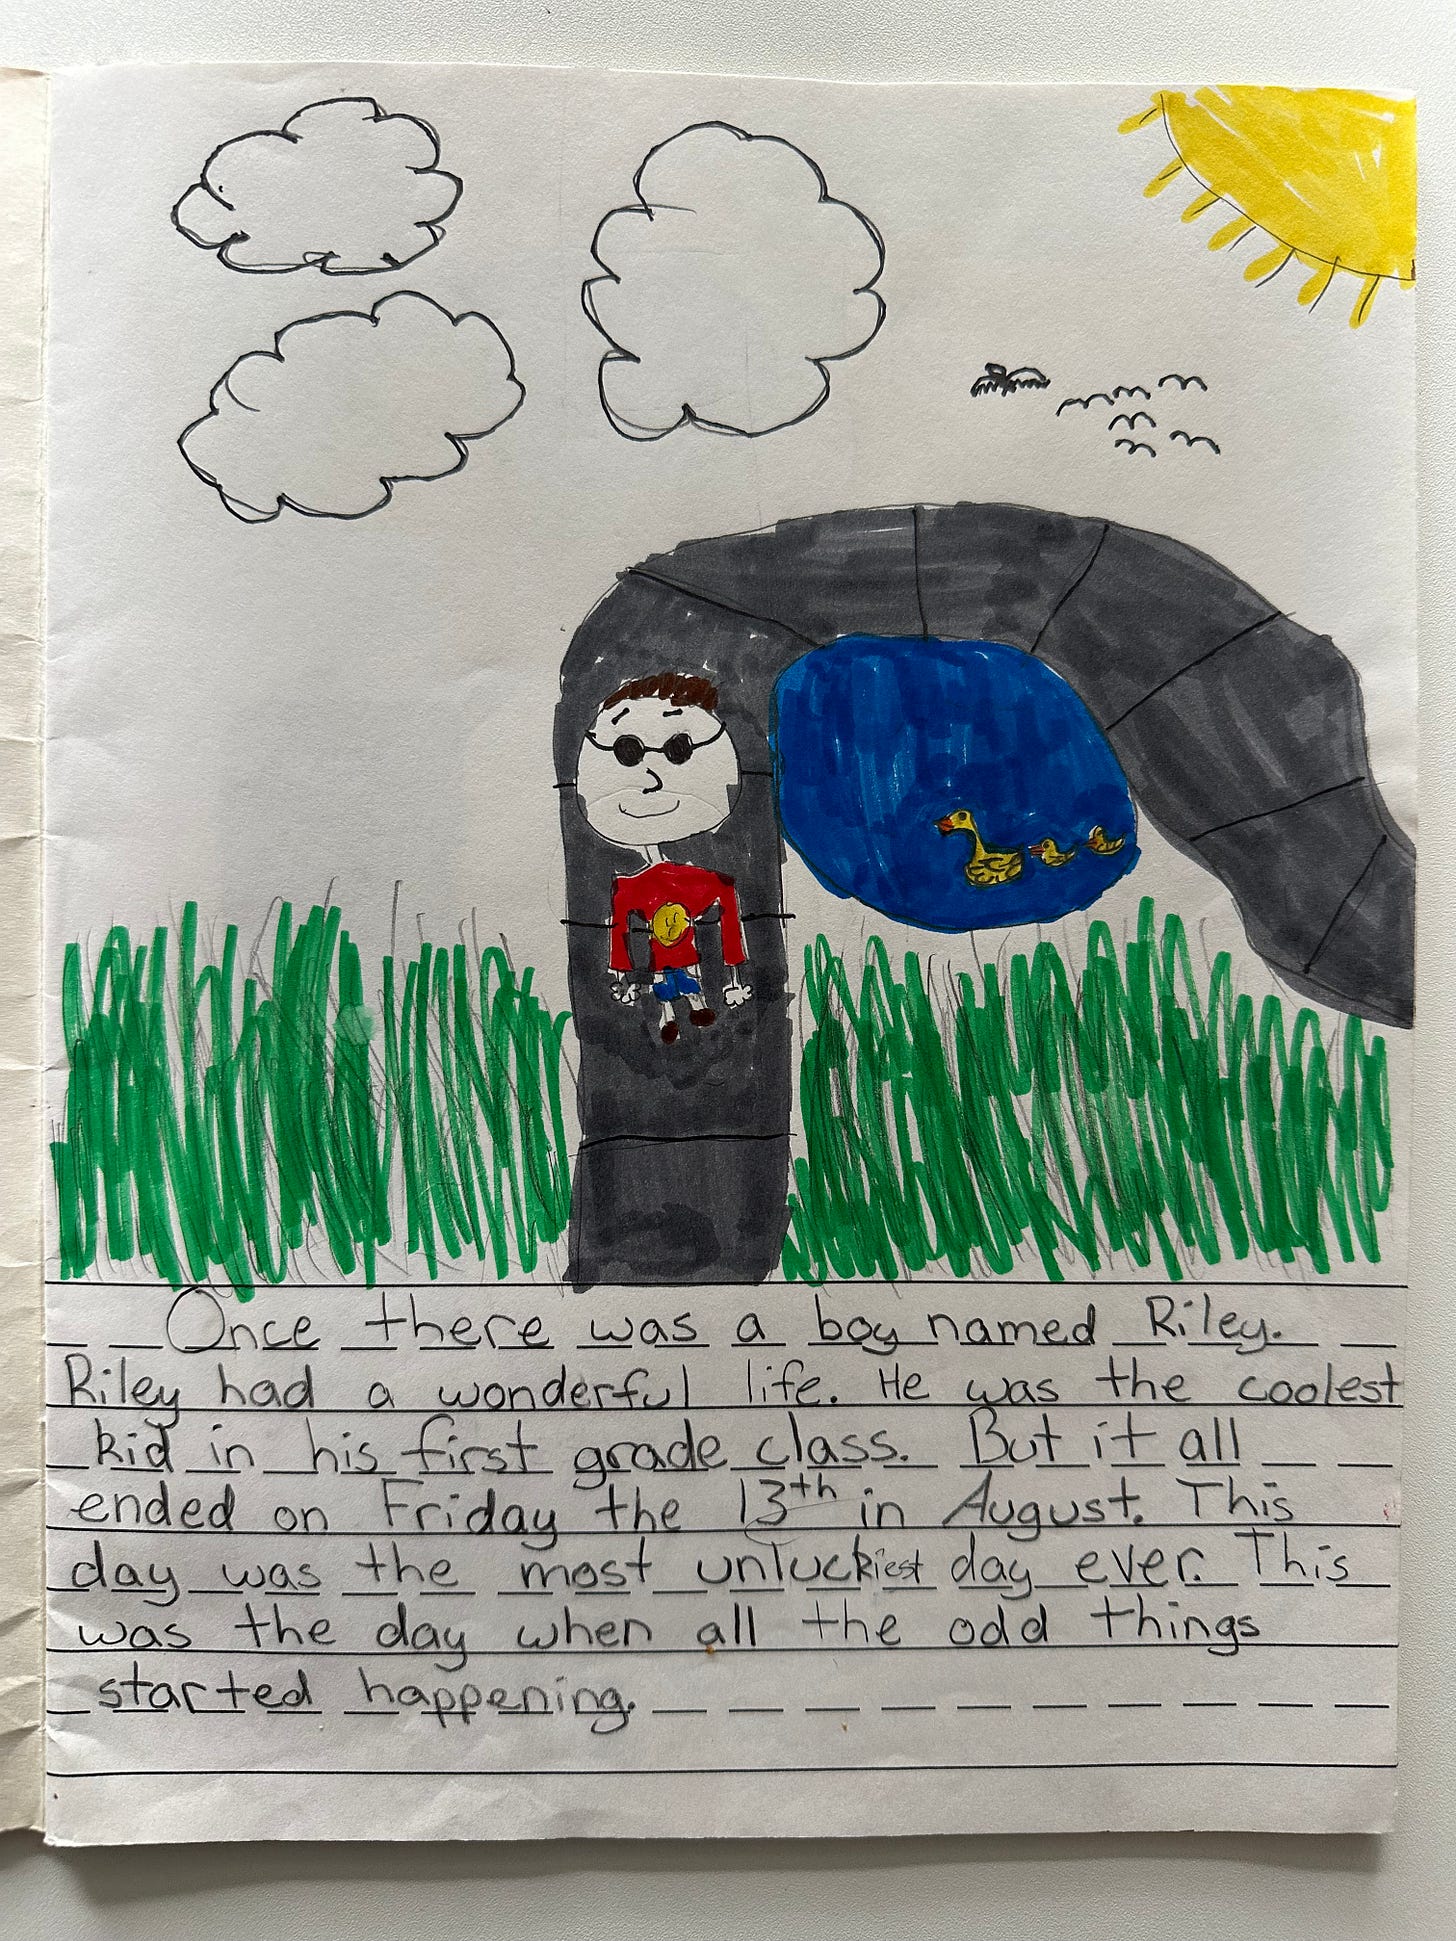 Once there was a boy named Riley.
Riley had a wonderful life. He was the coolest
kid in his first grade class. But it all
ended on Friday the 13th in August. This
day was the most unluckiest day ever. This
was the day when all the odd things
started happening.